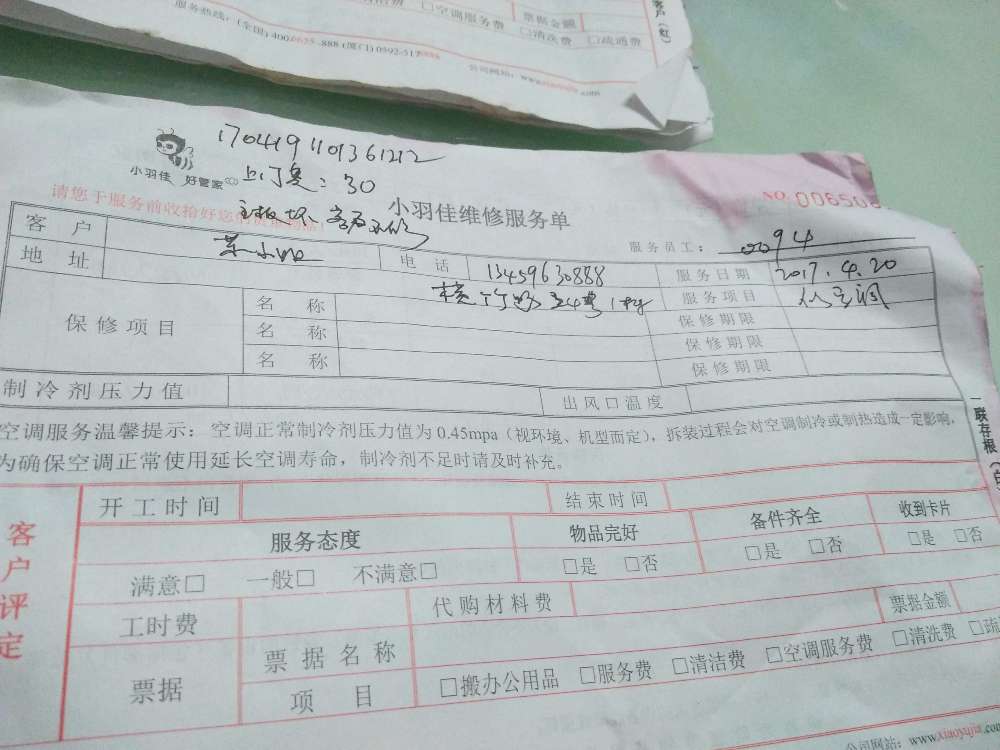 服务热线:(全国) 400
888 (厦门) 0592-512
□空调服务费
票据金额
□清洗费 □疏通费
公司网站: www.xiaoyujia.com
客户(红)
1704191101361212
小羽佳 好管家
上门费:30
主板坏、客户不修
请您于服务前收拾好
小羽佳维修服务单
NO.00650
服务员工: 0094
客户
电话 13459630888
服务日期 2017.4.20
地址
34号
服务项目
保修项目
名称
保修期限
名称
保修期限
名称
保修期限
制冷剂压力值
出风口温度
空调服务温馨提示:空调正常制冷剂压力值为0.45mpa(视环境、机型而定),拆装过程会对空调制冷或制热造成一定影响,
为确保空调正常使用延长空调寿命,制冷剂不足时请及时补充。
一联存根(白)
客户评定
开工时间
结束时间
服务态度
物品完好
备件齐全
收到卡片
满意□ 一般□ 不满意□
□是 □否
□是 □否
□是 □否
工时费
代购材料费
票据金额
票据
票据名称
项目
□搬办公用品 □服务费 □清洁费 □空调服务费 □清洗费 □疏
公司网站: www.xiaoyujia.com